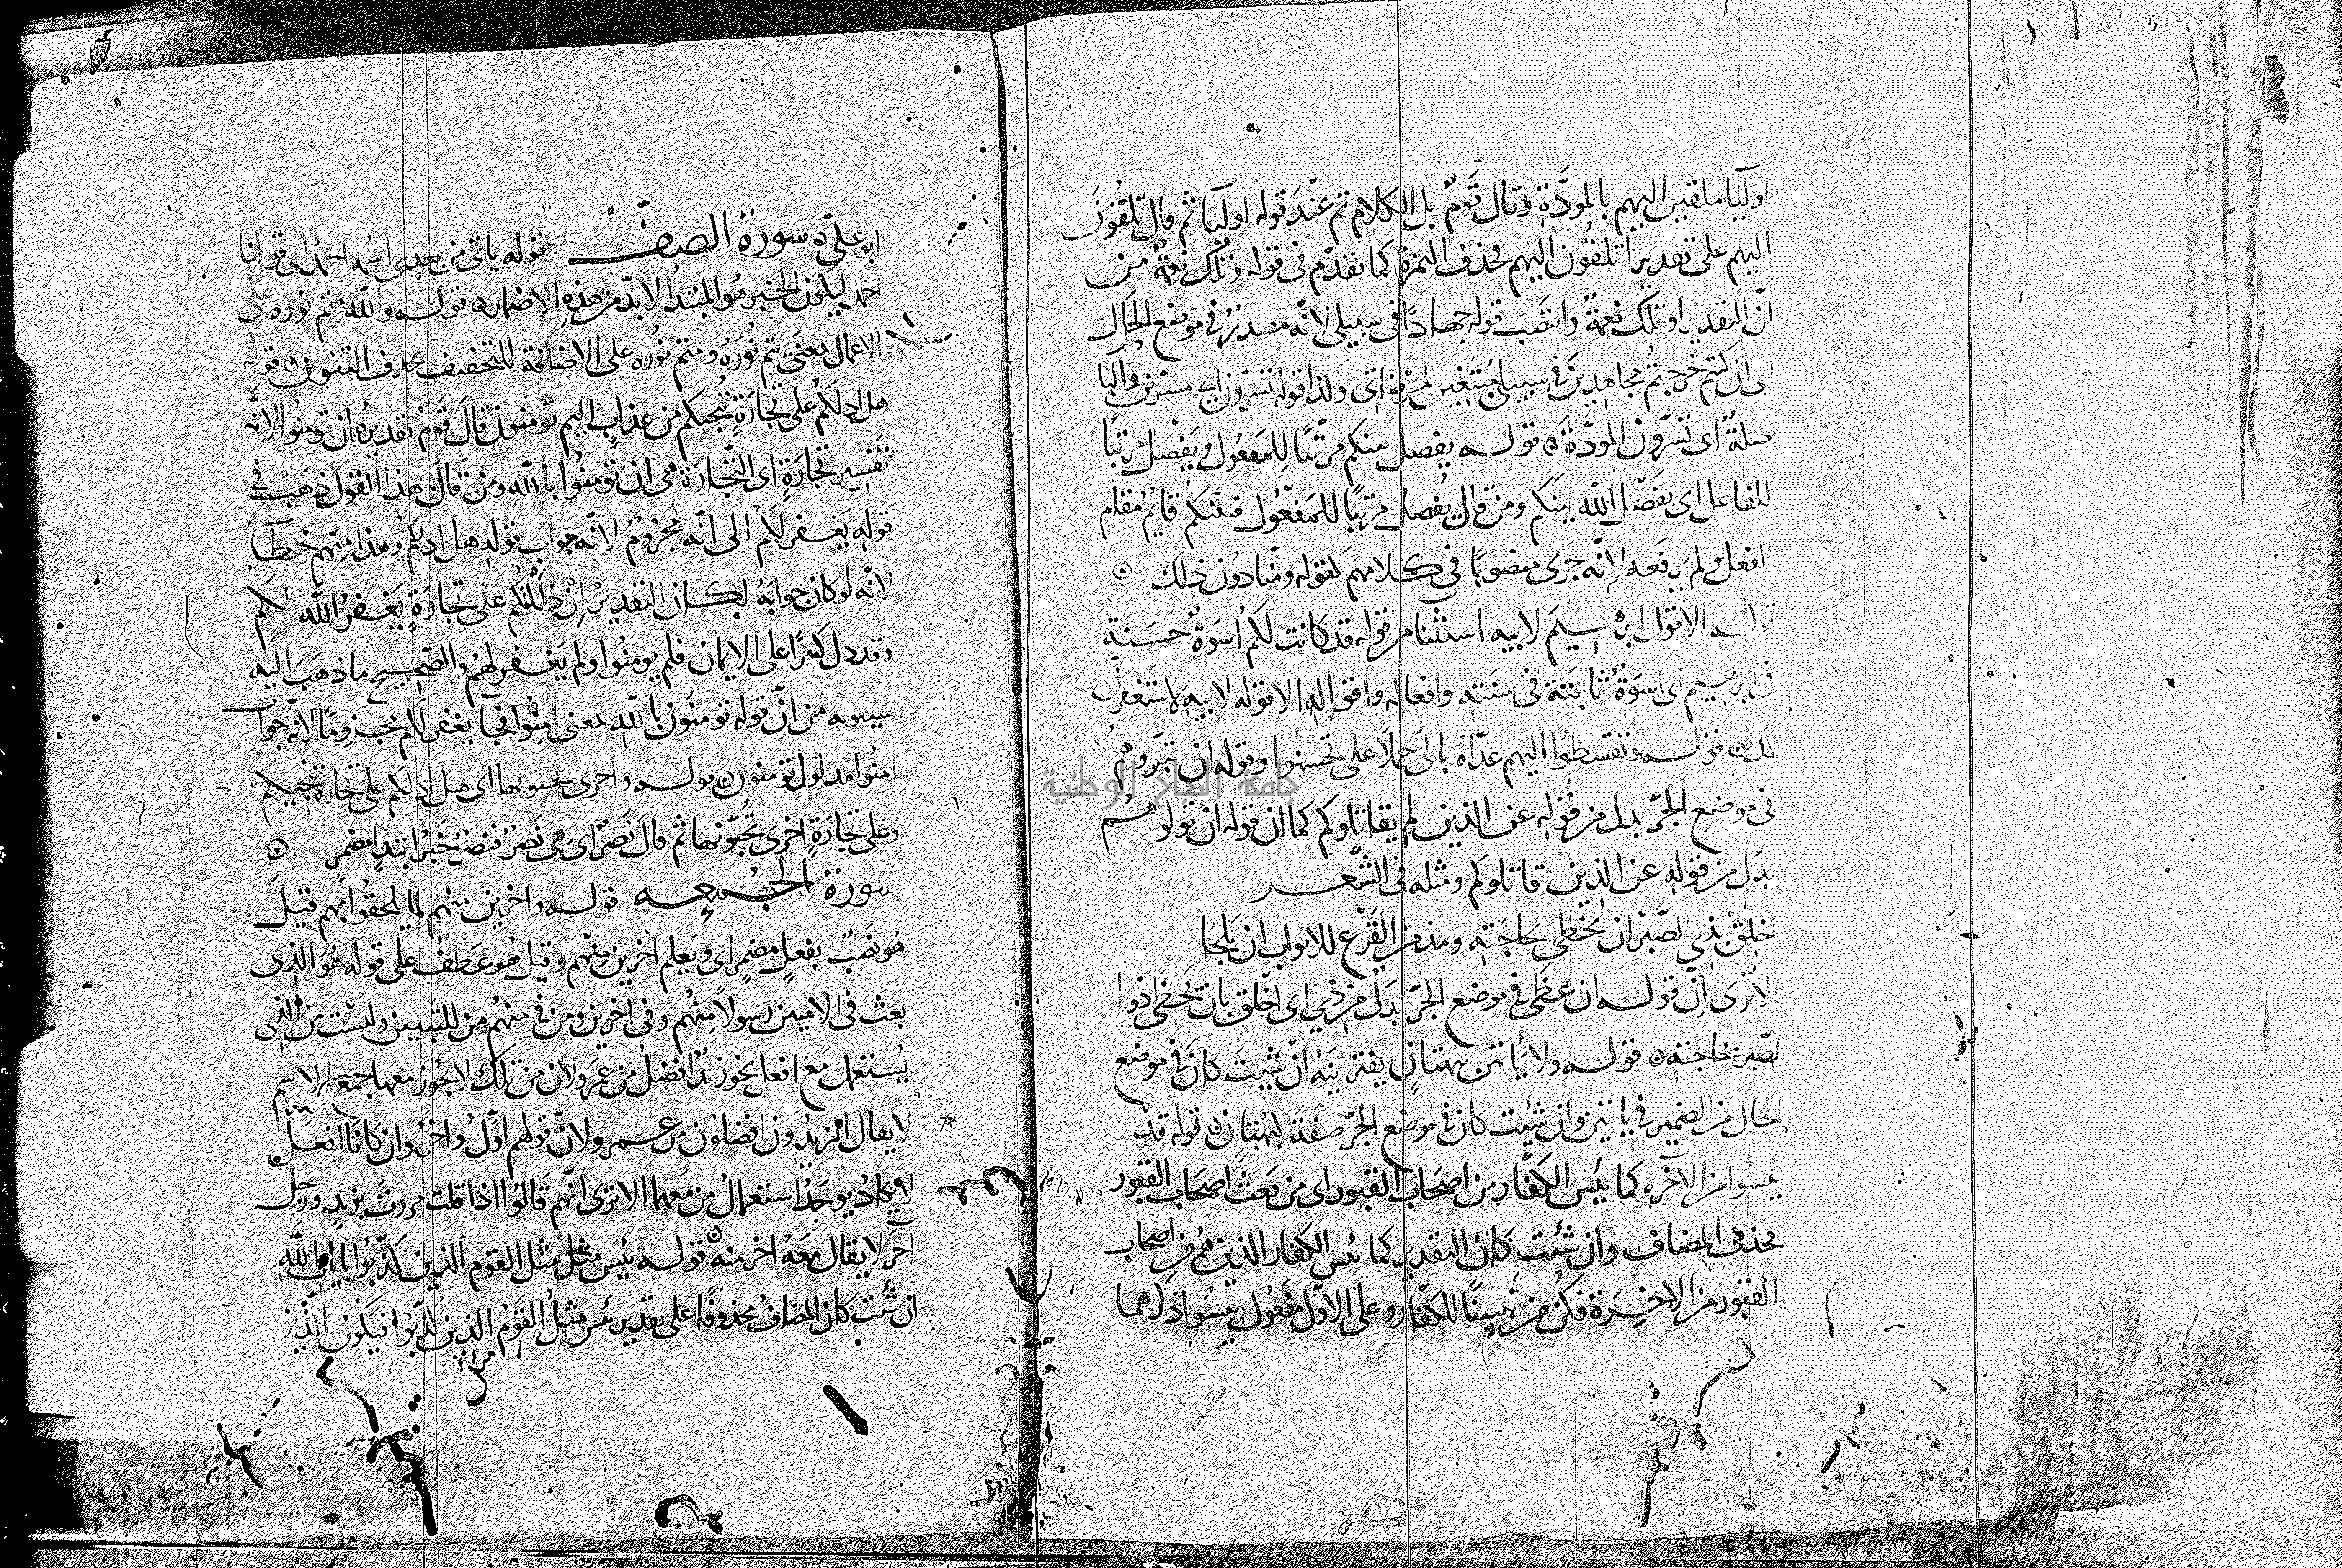 اوليا ملقين اليهم بالمودَّة وقال قَومٌ بل الكلام تم عندَ قوله اوليا ثم قال تُلقُونَ
اليهم على تقدير اتلقون اليهم فحذف الهمزة كما تقدّم فى قوله وتلك نعمةٌ من
انّ التقدير اوتلك نعمةٌ وانتصَبَ قوله جهادًا فى سبيلى لانّه مصدرٌ فى موضع الحال
اى ان كنتم خرجتم مجاهدِينَ فى سبيلى مُبتغين لمرضاتى وكذا قوله تسرّون اى مسترين والبا
صلةٌ اى تسرّون المودّةَ ه قولـــه يفصل بينكم مرتّبًا لِلمَفعُول ويَفْصل مرتبًا
للفاعل اى يفصل الله بينكم ومن قال يُفصل مرتبًا للمَفعُول فبينَكم قايمٌ مقام
الفعل ولم يرفعه لانّه جَرَى منصوبًا فى كلامهم كقوله ومنّا دُون ذلك ه
قوله الا قول ابرهيمَ لابيه استثنا من قوله قد كانت لكم اُسوَةٌ حَسَنَةٌ
فى ابرهيم اى اسوَةٌ ثابتة فى سنته وافعاله واقواله الا قوله لابيه لاستغفرن
لك ه قولـــه وتقسطوا اليهم عدّاهُ بالى حملًا على تحسنوا وقوله ان تبرّوهُم
جامعة النجاح الوطنية
فى موضع الجرّ بدل من قوله عن الذين لم يقاتلوكم كما ان قوله ان تولوهُم
بدَل من قوله عن الذين قاتلوكم ومثله فى الشّعر
اخلِقْ بذى الصَّبْر ان يَحظى بحاجَتِه ومدمن القَرْع للابواب ان يَلجَا
الا ترى انّ قولـــه ان يحظى فى موضع الجرّ بدَل من ذى اى اخلق بان يَحظى ذوا
لصّبر بحاجَته ه قولـــه ولا يأتين ببهتانٍ يفترينَهُ ان شيتَ كانَ فى موضع
الحال من الضمير فى ياتين وان شيت كان فى موضع الجرّ صفَةً لبُهتان ه قوله قد
يَيسوا من الآخره كما يَئس الكفّار من اصحَاب القبور اى من بَعث اصحَاب القبور
فحذف المضاف وان شئت كان التقدير كما ئئس الكفار الذين هُم من اصحاب
القبور من الاخِرَة فكُن من تبيينًا للكفّار وعلى الاوّل مَفعُول ييسوا ذكرهما
ابو علىّ ه سورة الصفّ قوله ياتى من بَعدِى اسمه احمدُ اى قولنا
احمد ليكون الخبر هو المبتدأ لا بدّ من هذه الاضمار ه قولـــه والله متم نوره على
الاعمال بمعنى يتم نُورَهُ ومتم نُورِه على الاضافة للتخفيف بحذف التنوين ه قوله
هل ادلكُم على تجارَةٍ تُنجيكم من عذابٍ اليم تومنون قالَ قَومٌ تقديرُه ان تومنُوا لانّه
تفسِير تجارَةٍ اى التّجارَة هى ان تومنُوا بالله ومن قَالَ هذا القول ذهَبَ فى
قوله يَغفر لكُم الى انّه مجزومٌ لانّه جواب قوله هل ادلكم وهذا منهم خطأ
لانّه لو كان جوابَهُ لكان التقديرُ ان دَلَلتُكُم على تجارَةٍ يَغفرُ الله لكم
وقد دل كثيرًا على الايمان فلم يومنُوا ولم يَغفر لهُم والصّحِيح ما ذهَبَ اليه
سيبويه من انّ قوله تومنُون بالله بمعنى امِنُوا فجآ يغفر لكم مجزومًا لانّه جوابُ
امنُوا مدلول تومنون ه قولـــه واخرى تحبونها اى هل ادلكم على تجارة تُنجيكم
وعلى تجارَةٍ اخرى تُحبّونها ثم قالَ نَصرٌ اى هى نَصرٌ فنصرٌ خَبرُ ابتدإٍ مضمرٍ ه
سورة الجُمُعِه قولـــه واخرين منهم لما يلحقُوا بهم قيلَ
هُو نَصبٌ بفعلٍ مضمرٍ اى ويَعلم اخرين منهم وقيل هُو عَطفٌ على قوله هُوَ الذى
بعث فى الاميين رسولًا مِنهُم وفى اخرين ومن فى منهُم من للتَّبيين وليسَتْ من الّتى
يُستعمل مَعَ افعل نحو زيدٌ افضلُ من عَمرو لان من تلك لا يجُوز معَها جمع الاسم
لا يقال الزيدُون افضلون من عمرو ولانّ قولهم اوّلُ واخَر وان كانَا افعَل
لا يكادُ يوجَدُ استعمالُ من مَعَهما الا ترى انّهم قَالُوا اذا قلت مررتُ بزيدٍ ورجلٍ
آخَر لا يقال معَهُ اخر منه ه قولـــه بئس مثل القوم الذين كذّبُوا بايات اللَّهِ
ان شئت كان المضافُ محذوفًا على تقدير بئس مثلُ القَوْم الذين كذّبُوا فيكون الّذين